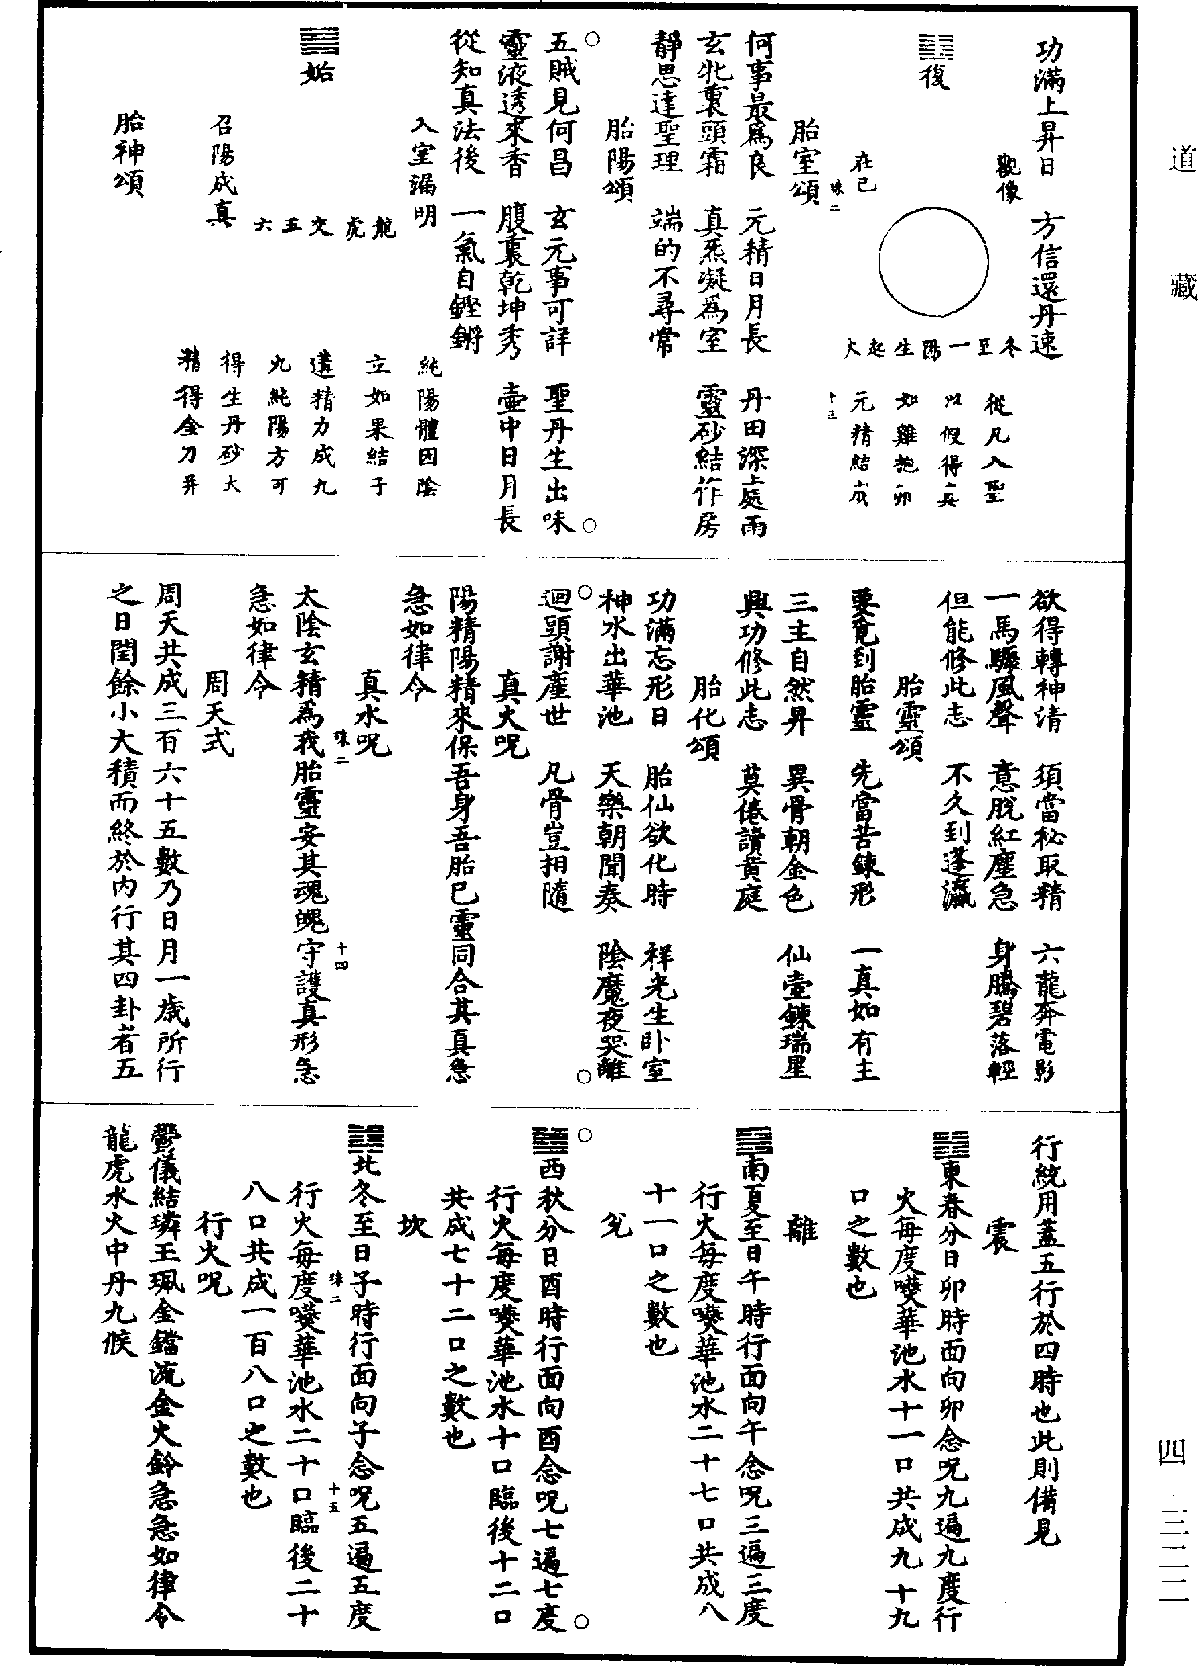 道藏
四
三二二
功滿上昇日　方信還丹速
觀像
䷗復
冬至一陽生起大
在己
從凡入聖
以假得真
如雞抱卵
元精結成
珠二
十三
胎室頌
何事最爲良　元精日月長　丹田深處雨
玄牝裏頭霜　真炁凝爲室　靈砂結作房
靜思達聖理　端的不尋常
胎陽頌
五賊見何昌　玄元事可詳　聖丹生出味
靈液透來香　腹裏乾坤秀　壺中日月長
從知真法後　一氣自鏗鏘
入室漏明
龍虎交五六
䷫姤
純陽體因陰
立如果結子
遘精力成九
九純陽方可
得生丹砂大
精得金刀昇
召陽成真
胎神頌
欲得轉神清　須當秘取精　六龍奔電影
一馬驟風聲　意脫紅塵急　身騰碧落輕
但能修此志　不久到蓬瀛
胎靈頌
要覓到胎靈　先當苦鍊形　一真如有主
三主自然昇　異骨朝金色　仙壺鍊瑞星
興功修此志　莫倦讀黃庭
胎化頌
功滿忘形日　胎仙欲化時　祥光生卧室
神水出華池　天樂朝聞奏　陰魔夜哭離
迴頭謝塵世　凡骨豈相隨
真火呪
陽精陽精來保吾身吾胎已靈同合其真急
急如律令
真水呪
珠二
十四
太陰玄精爲我胎靈安其魂魄守護真形急
急如律令
周天式
周天共成三百六十五數乃日月一歲所行
之日閏餘小大積而終於內行其四卦者五
行統用蓋五行於四時也此則備見
震
䷲東春分日卯時面向卯念呪九遍九度行
火每度嚥華池水十一口共成九十九
口之數也
離
䷝南夏至日午時行面向午念呪三遍三度
行火每度嚥華池水二十七口共成八
十一口之數也
兌
䷹西秋分日酉時行面向酉念呪七遍七度
行火每度嚥華池水十口臨後十二口
共成七十二口之數也
坎
䷜北冬至日子時行面向子念呪五遍五度
珠二
十五
行火每度嚥華池水二十口臨後二十
八口共成一百八口之數也
行火呪
鬱儀結璘玉珮金鐺流金火鈴急急如律令
龍虎水火中丹九候